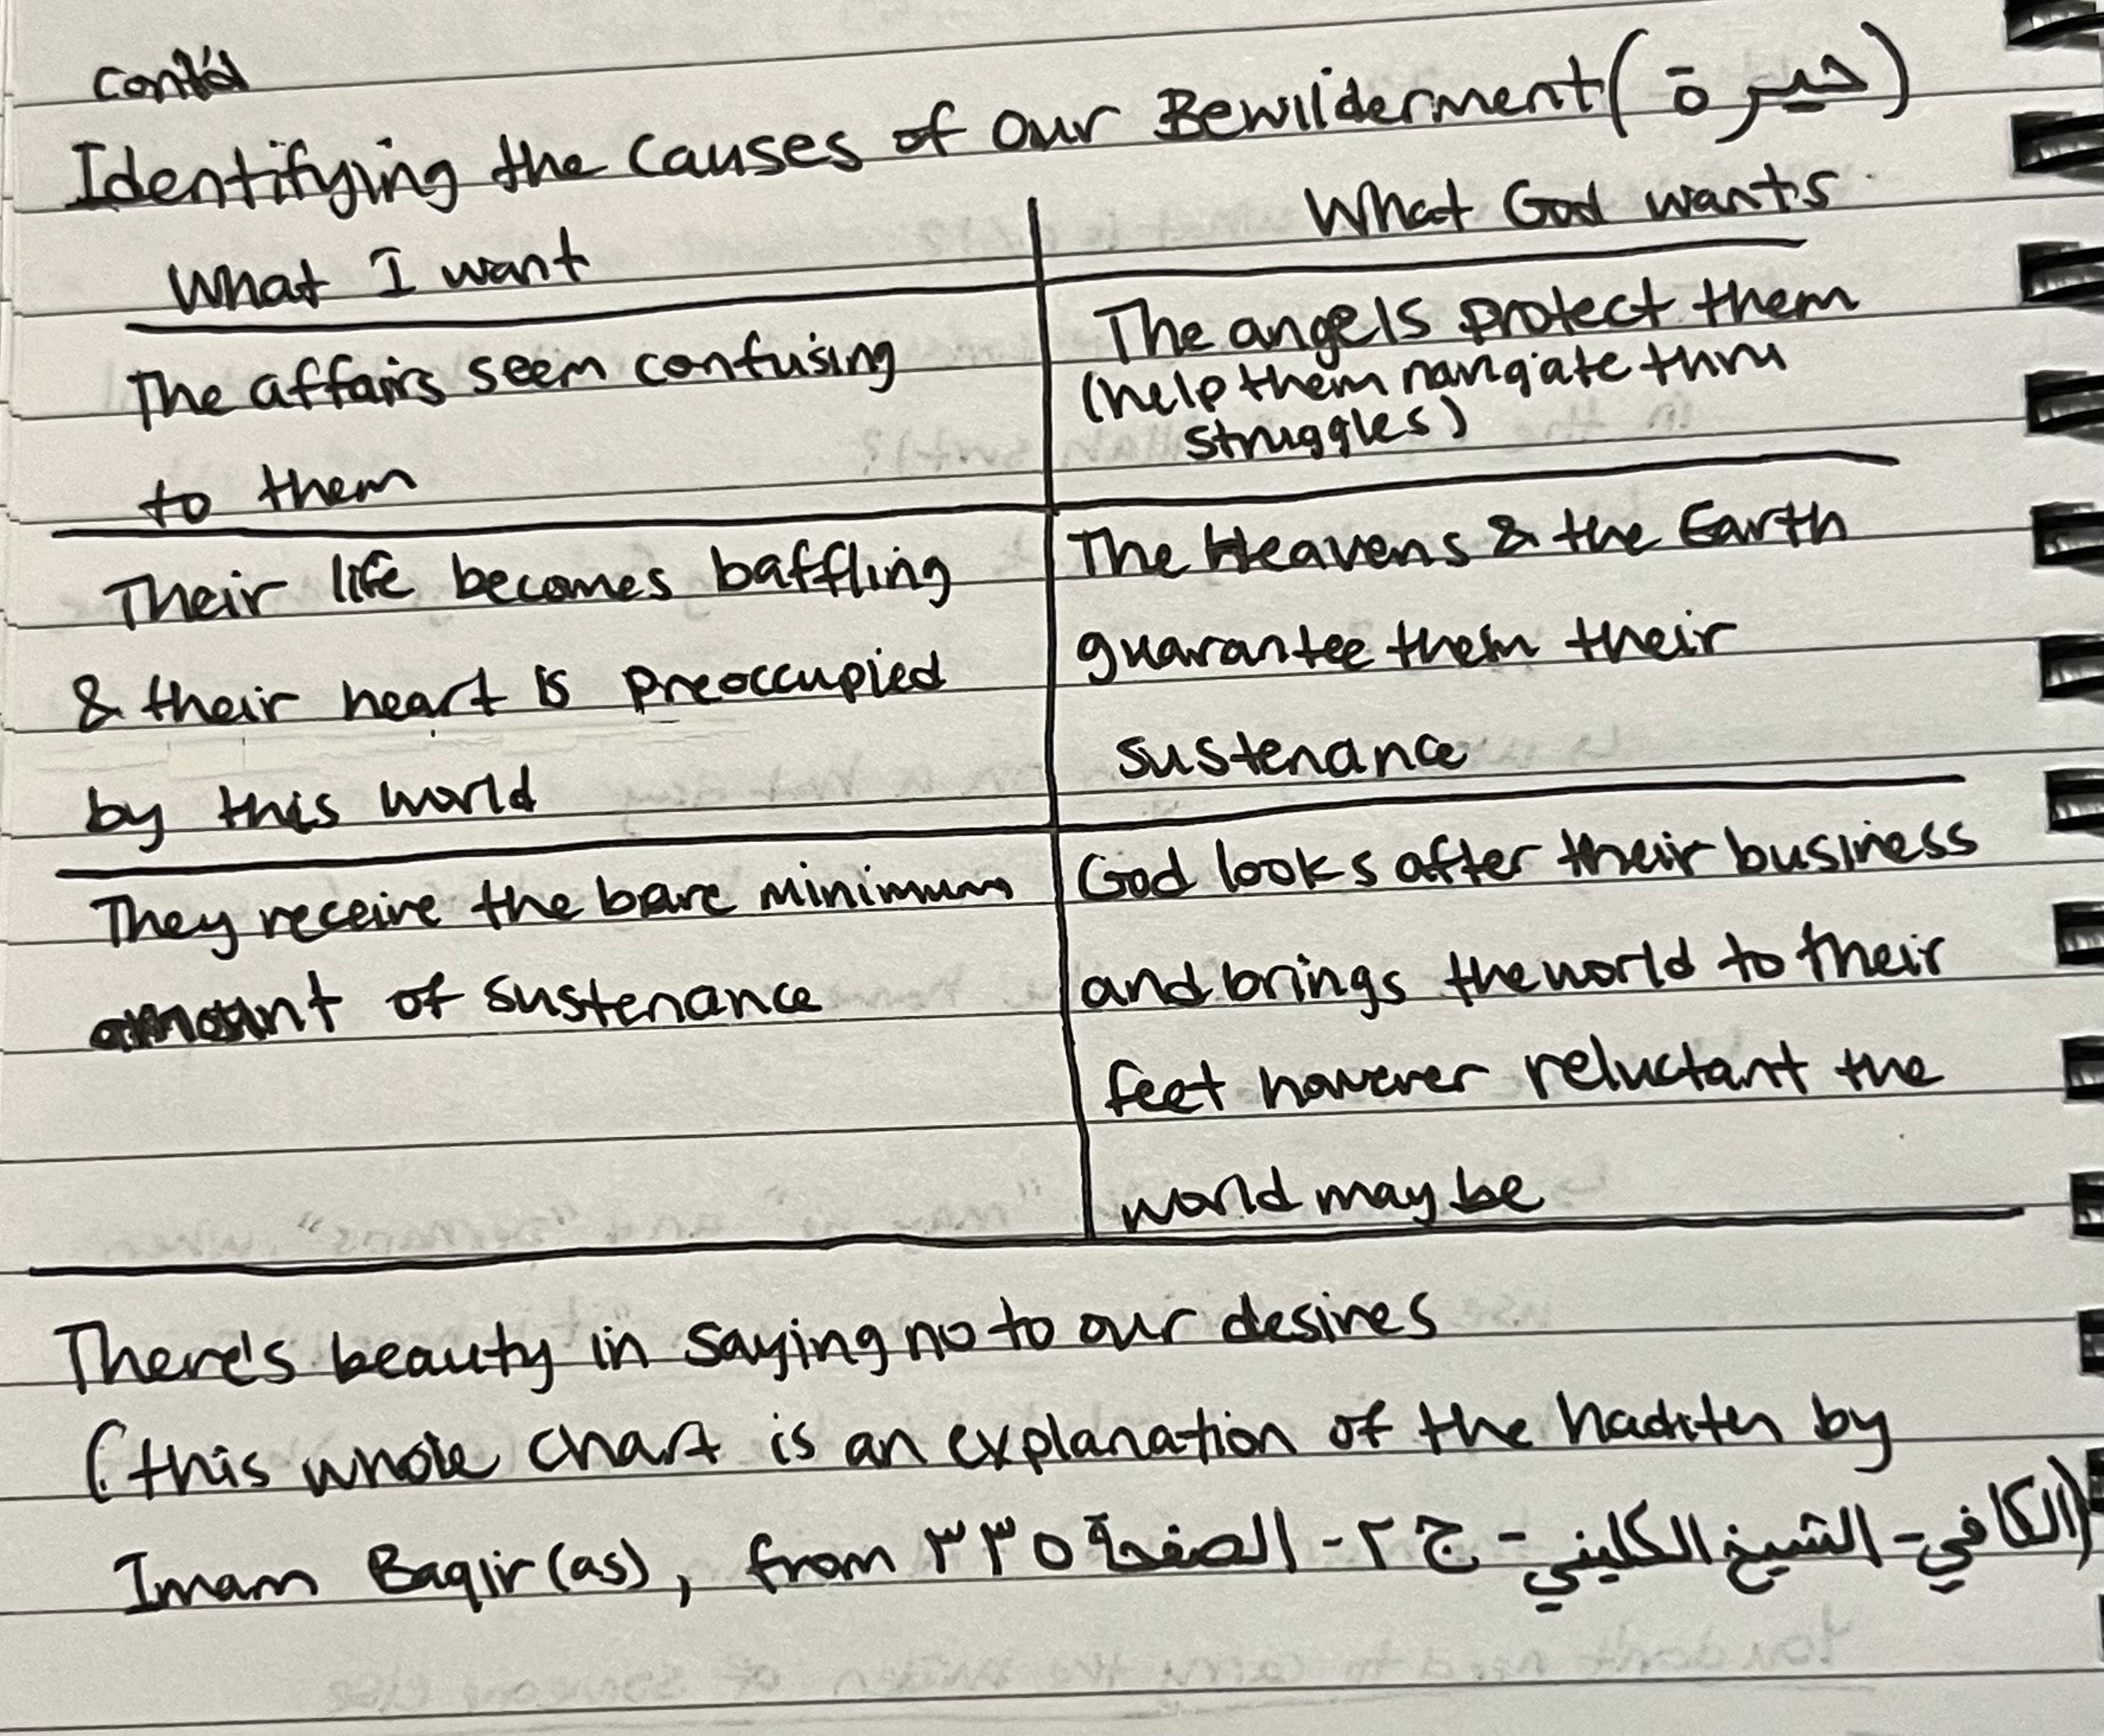 Cont'd
Identifying the Causes of Our Bewilderment (حيرة)
What I want
The affairs seem confusing
to them
Their life becomes baffling
& their heart is preoccupied
by this world
They receive the bare minimum
amount of sustenance
What God wants
The angels protect them
(help them navigate thru
struggles)
The Heavens & the Earth
guarantee them their
sustenance
God looks after their business
and brings the world to their
feet however reluctant the
world may be
There's beauty in saying no to our desires
(this whole chart is an explanation of the hadith by
Imam Baqir (as), from الكافي - الشيخ الكليني - ج ٢ - الصفحة ٣٣٥)